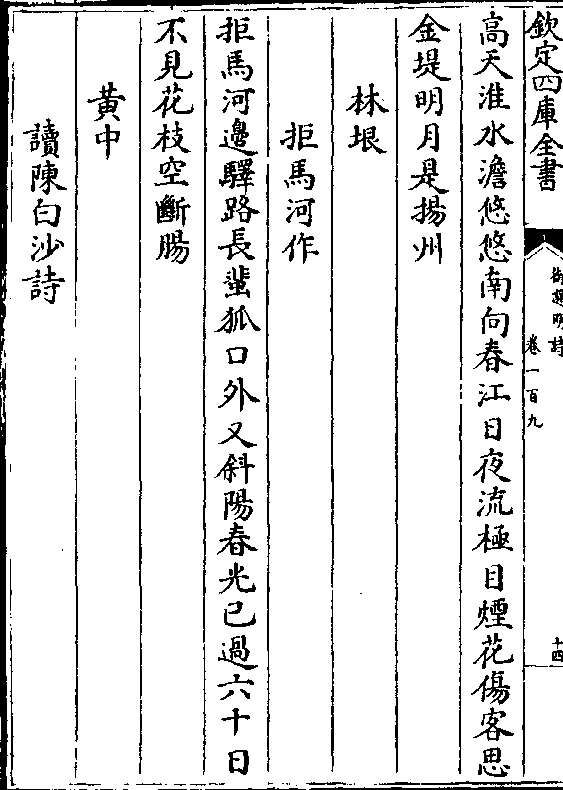 欽定四庫全書
御選明詩
卷一百九
十四
高天淮水澹悠悠南向春江日夜流極目煙花傷客思
金堤明月是揚州
林垠
拒馬河作
拒馬河邊驛路長蜚狐口外又斜陽春光已過六十日
不見花枝空斷腸
黃中
讀陳白沙詩